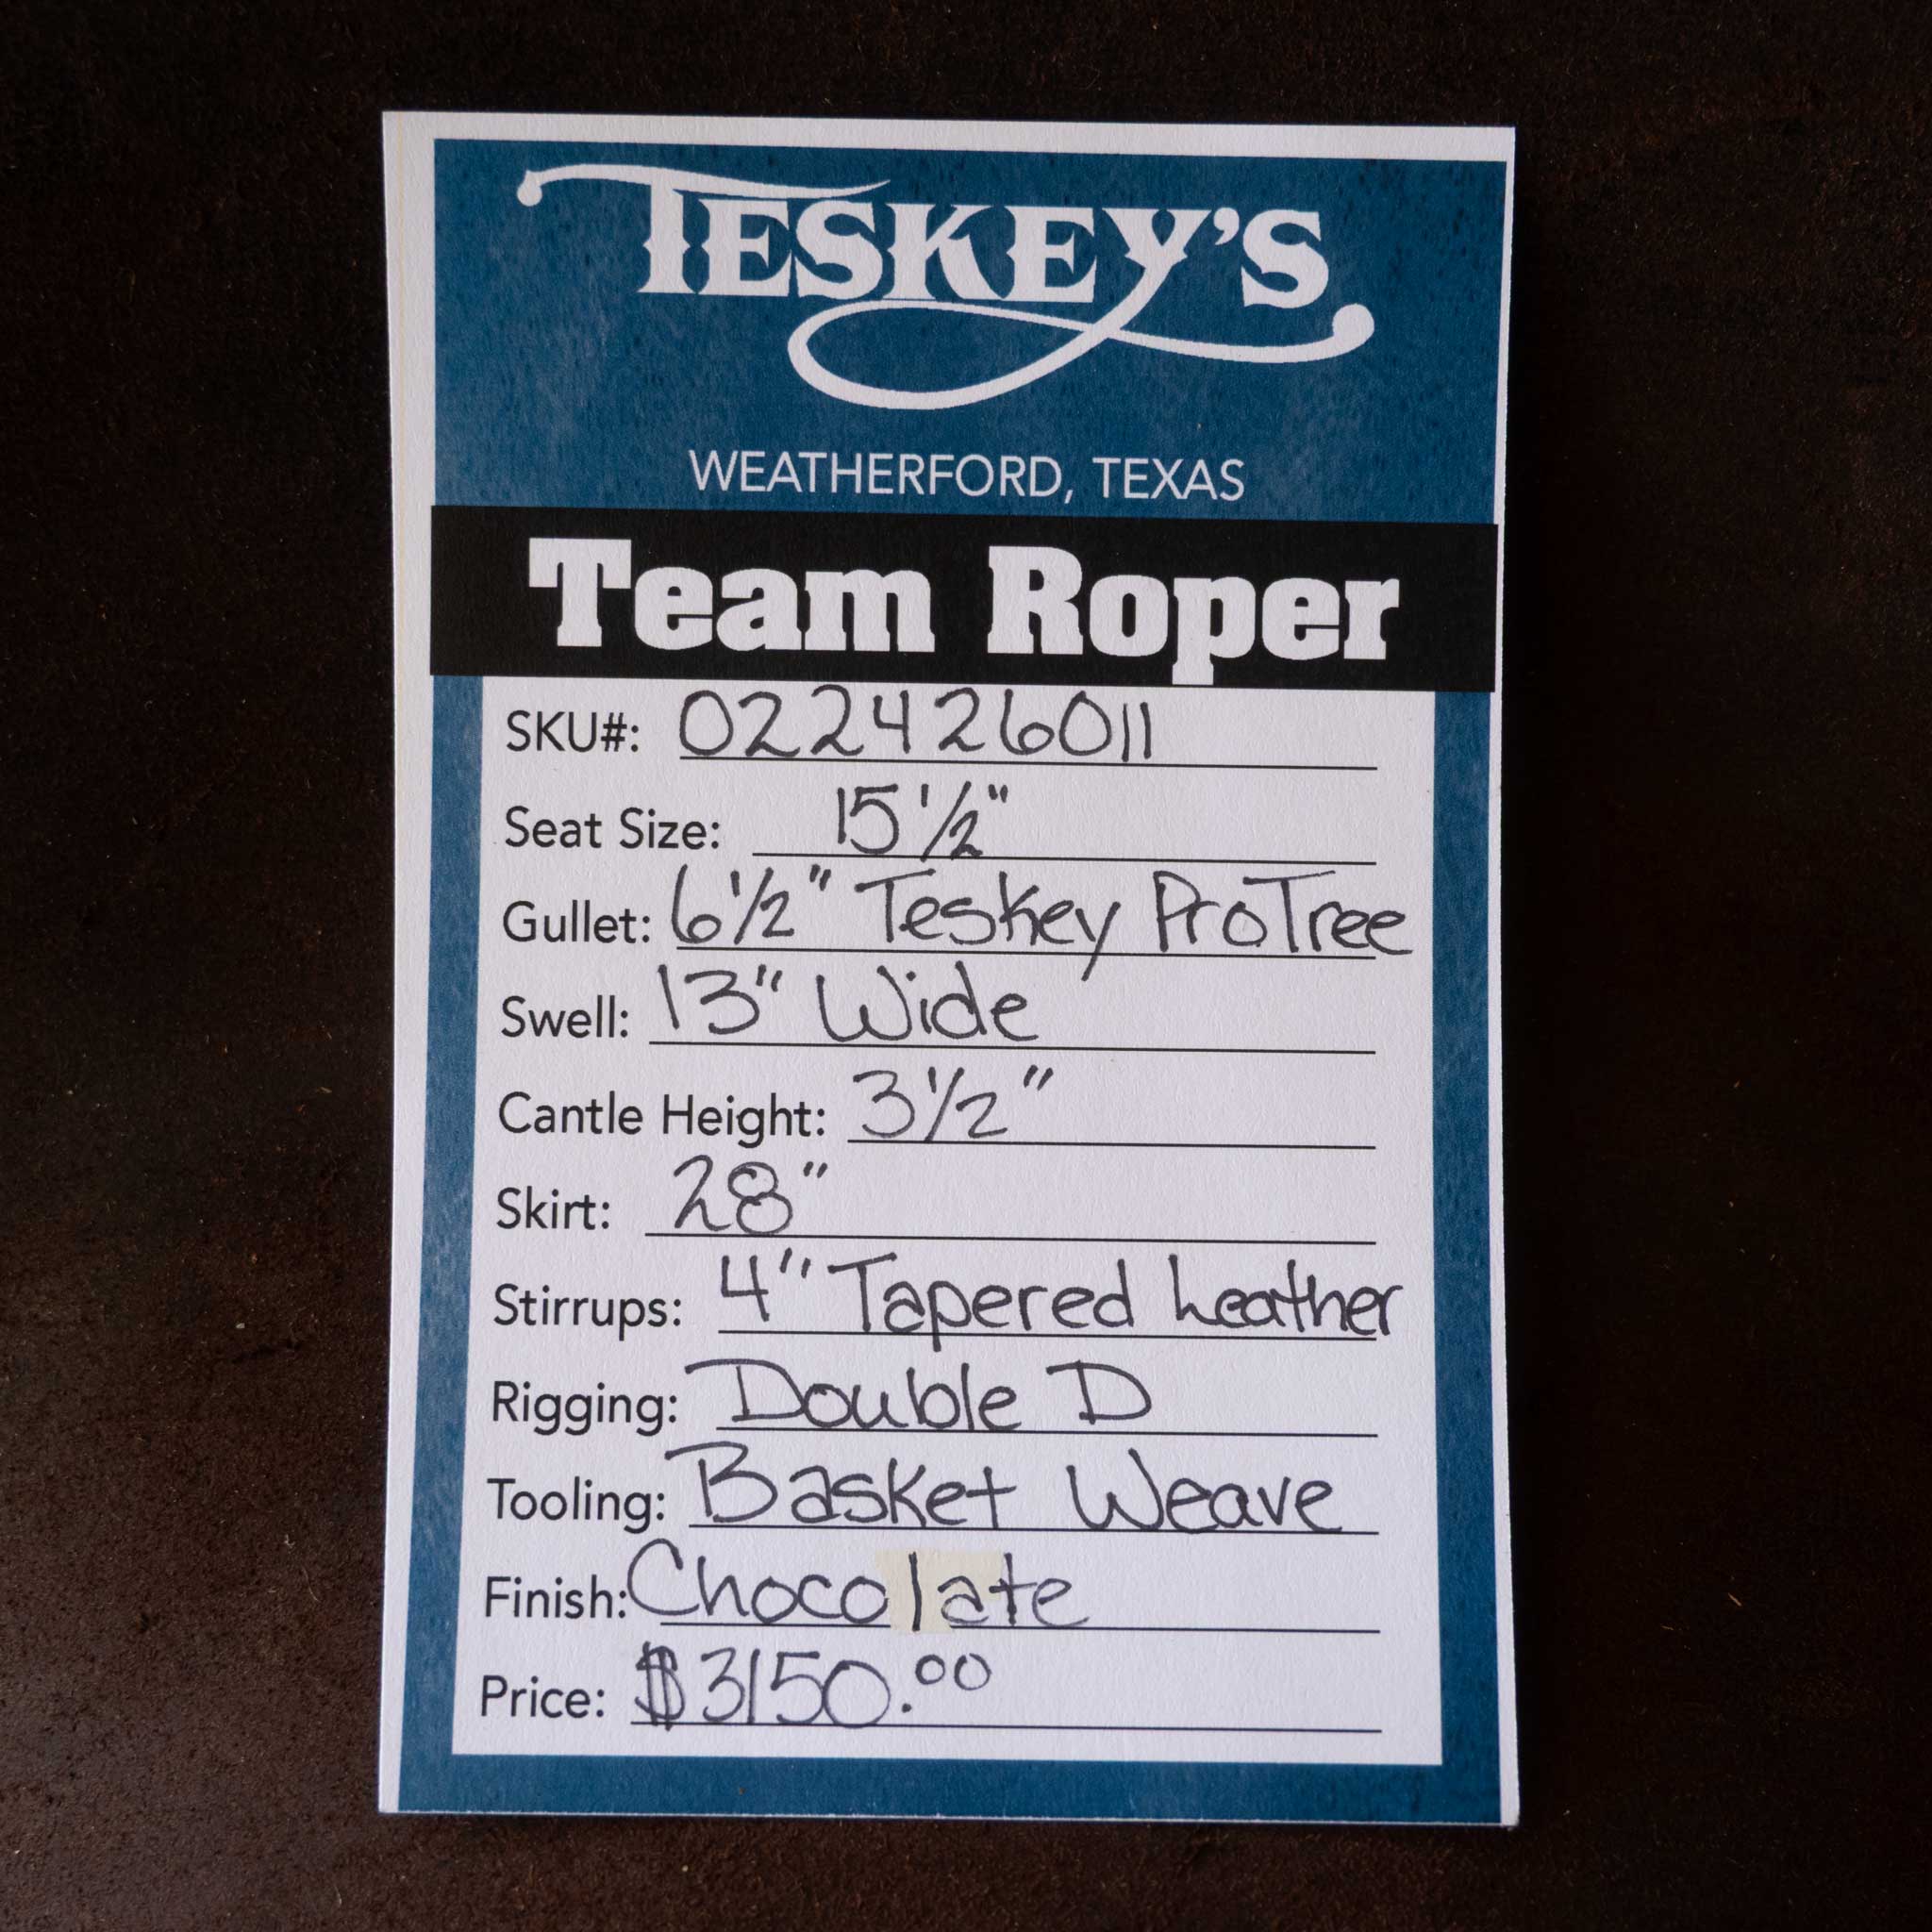 TESKEY'S
WEATHERFORD, TEXAS
Team Roper
SKU#: 022426011
Seat Size: 15 1/2"
Gullet: 6 1/2" Teskey ProTree
Swell: 13" Wide
Cantle Height: 3 1/2"
Skirt: 28"
Stirrups: 4" Tapered Leather
Rigging: Double D
Tooling: Basket Weave
Finish: Chocolate
Price: $3150.00